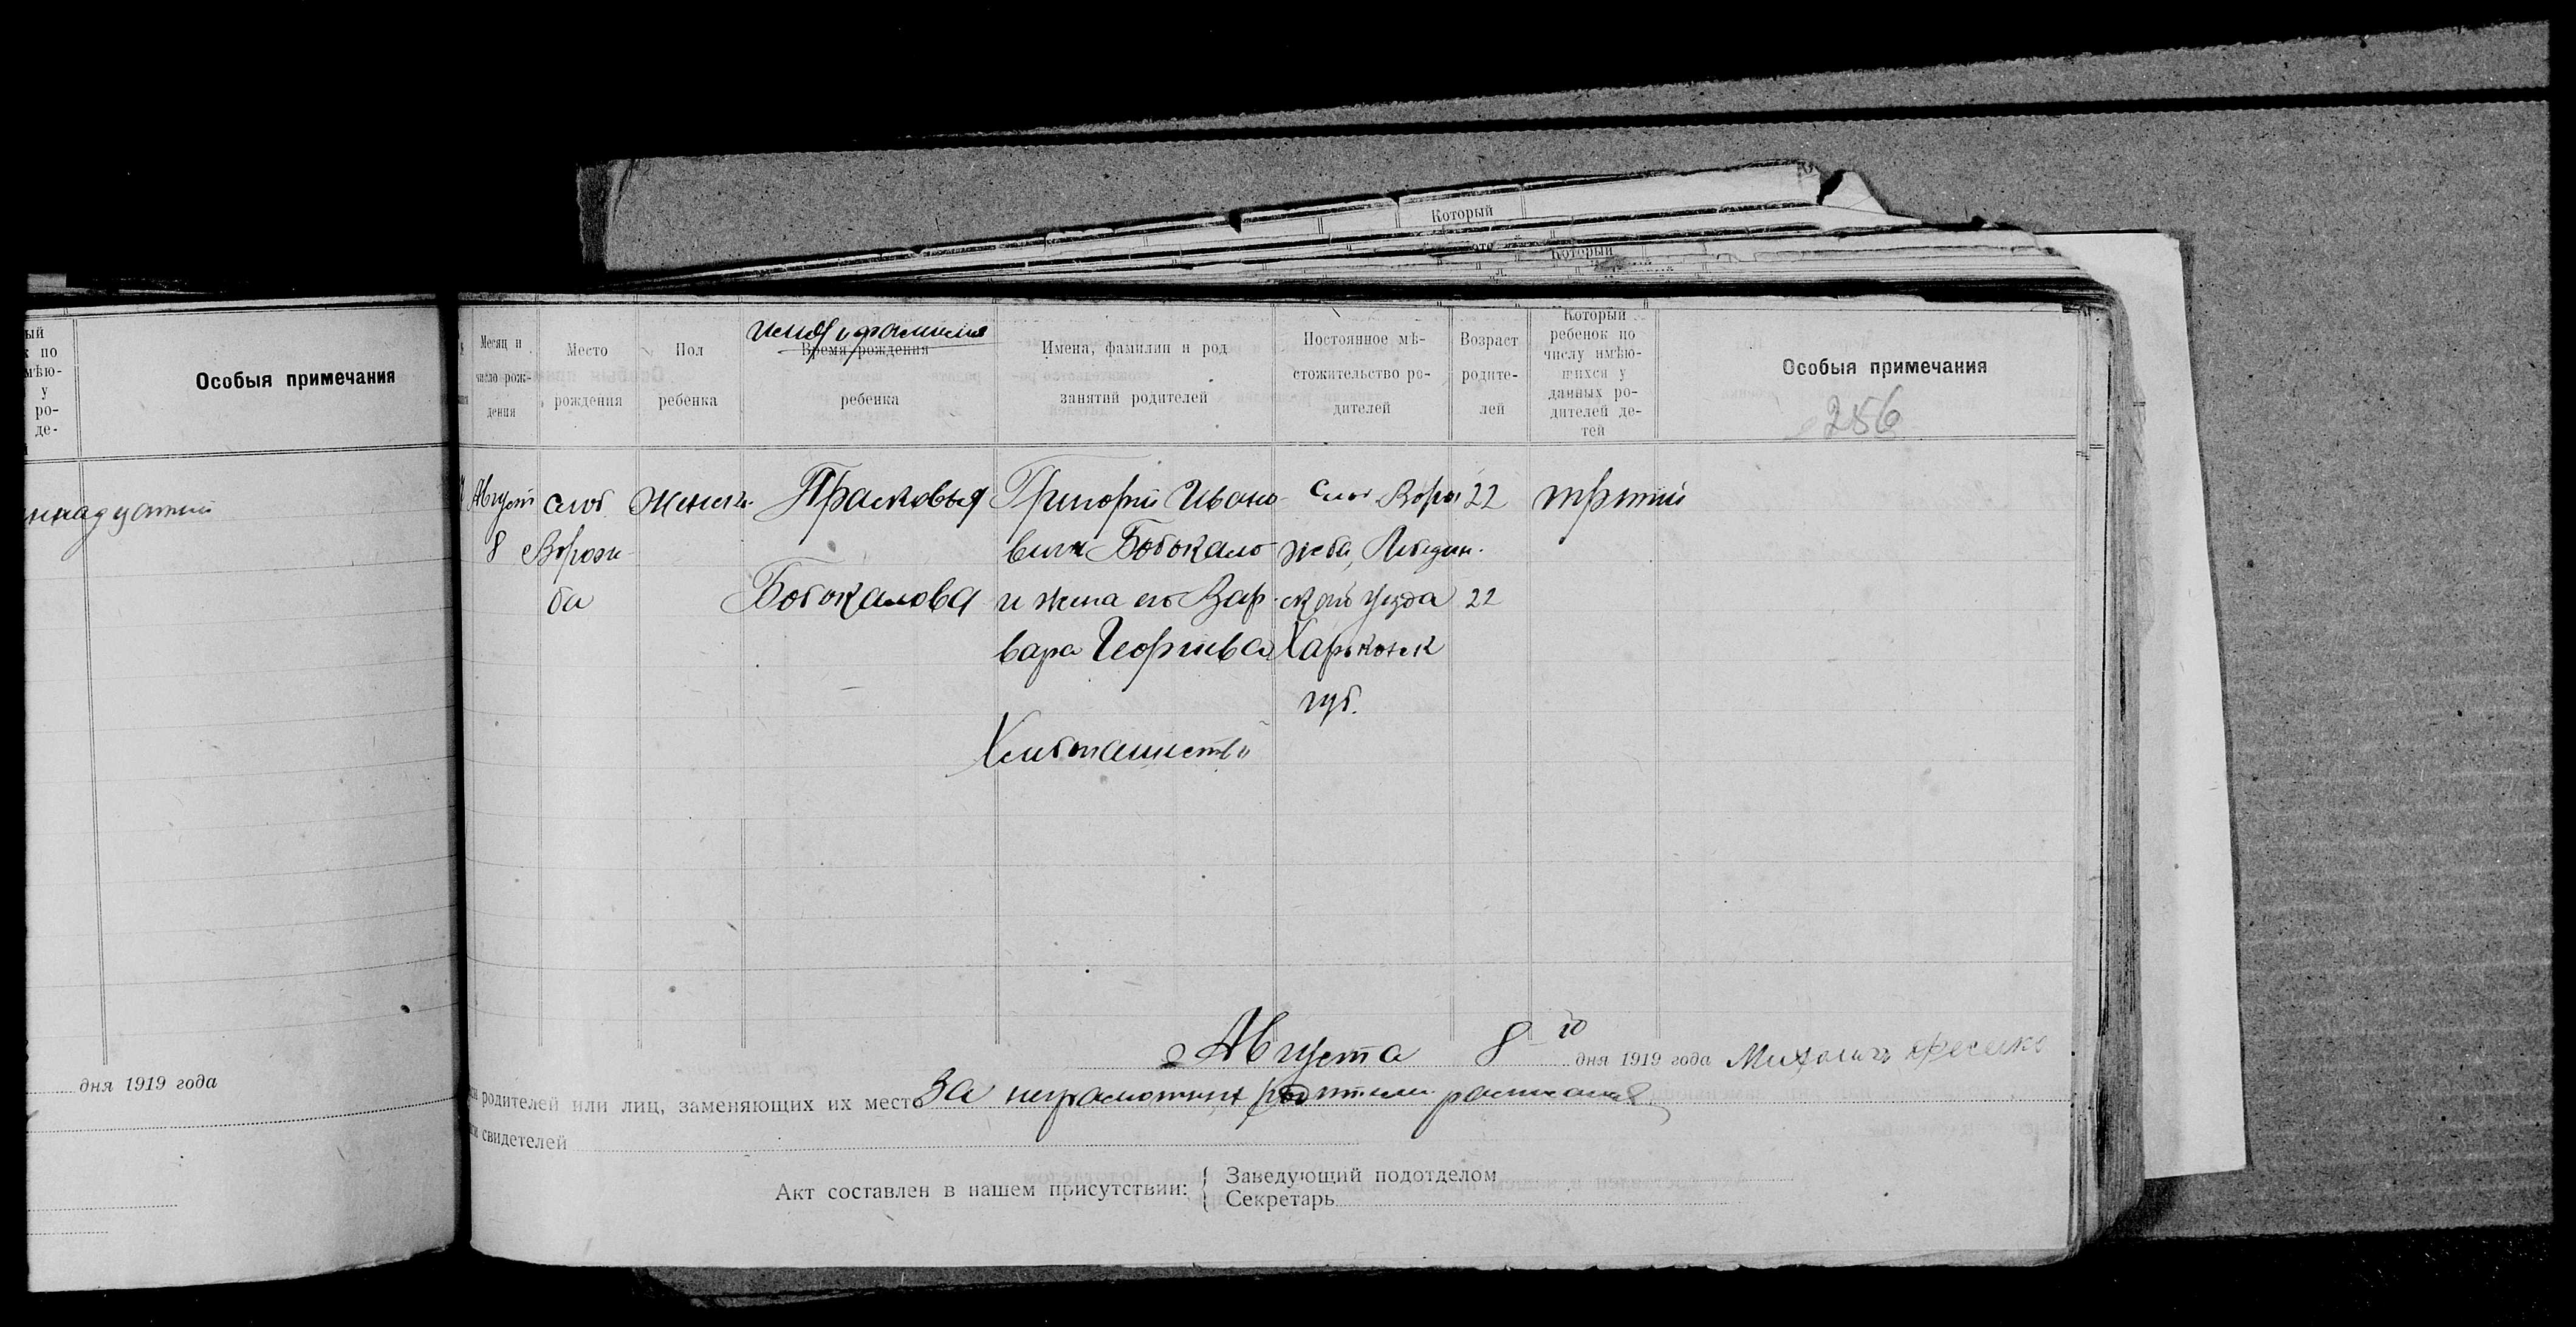 Который
Который
ый
х по
мѣю-
у
ро-
де-
Особыя примечания
Месяц и
число рож-
дения
Место
рождения
Пол
ребенка
имя и фамилия
Время рождения
ребенка
Имена, фамилии и род
занятий родителей
Постоянное мѣ-
стожительство ро-
дителей
Возраст
родите-
лей
Который
ребенок по
числу имѣю-
щихся у
данных ро-
дителей де-
тей
Особыя примечания
256
Август
8
слоб
Ворож
ба
Женск.
Прасковья
Бобокалова
Григорий Ивано
вич Бобокало
и жена его Вар
вара Георгиева
Хлебопашеств
Слоб Воро
жба, Лебедин.
ской уезда
Харьковск
губ.
22
22
третий
Августа 8 го дня 1919 года
родителей или лиц, заменяющих их место За неграмотных родители росписался
свидетелей
Акт составлен в нашем присутствии:
Заведующий подотделом
Секретарь
дня 1919 года